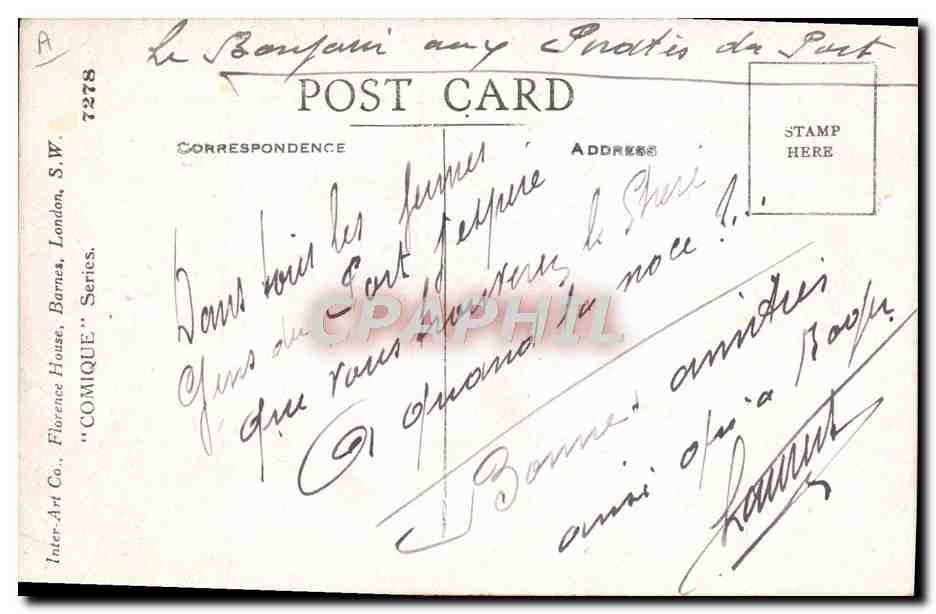 A
Le Bonjour aux Pirates du Port
POST CARD
CORRESPONDENCE
ADDRESS
STAMP
HERE
Dans tous les jeunes
Gens du Port j'espère
que vous trouverez le
A quand la noce !...
Bonnes amitiés
ainsi qu'a Roger
Laurent
Inter-Art Co., Florence House, Barnes, London, S.W.
"COMIQUE" Series. 7278
CPAPHIL